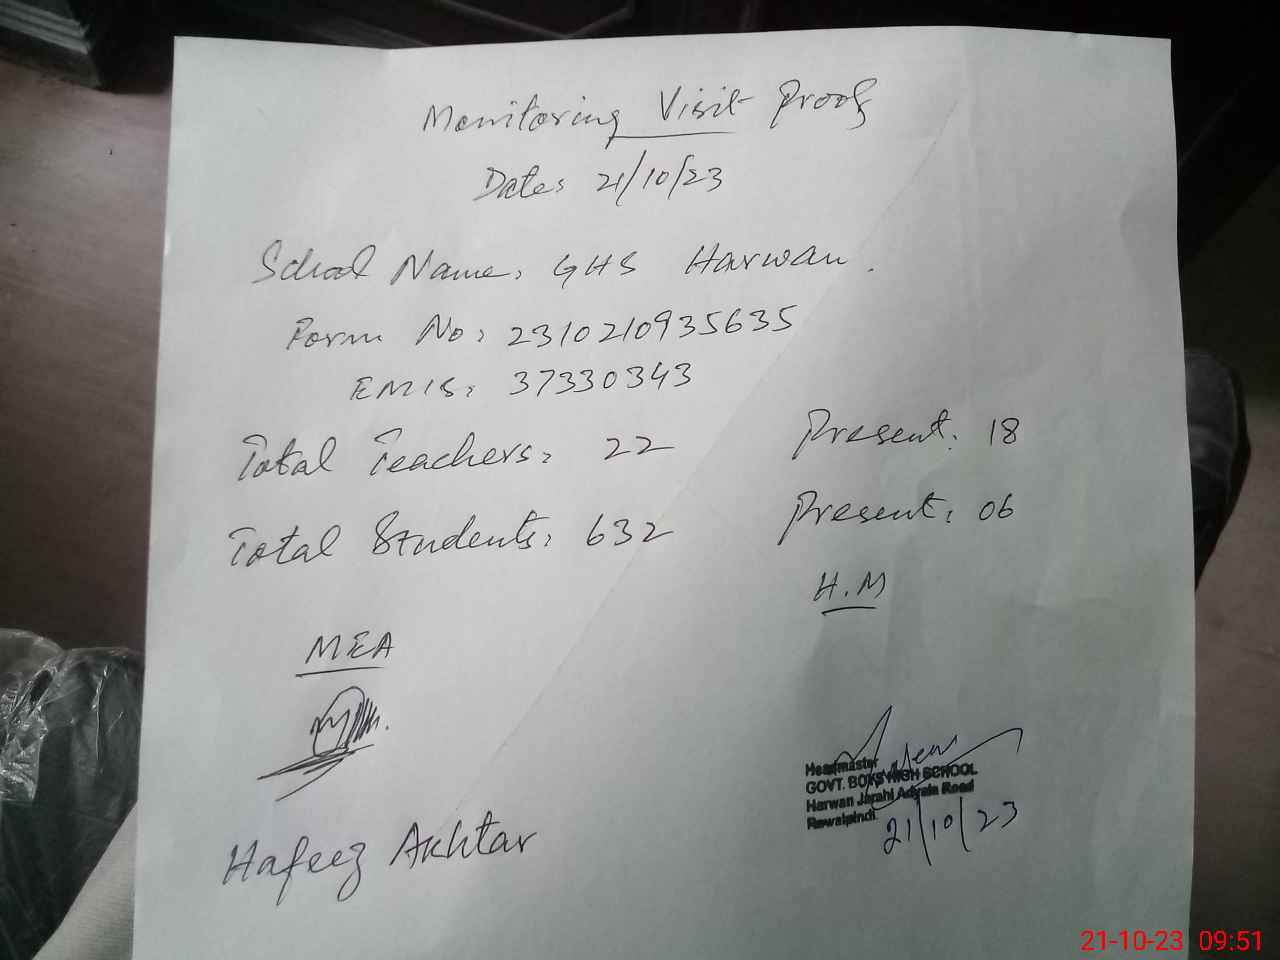 Monitoring Visit Proof
Date: 21/10/23
School Name: GHS Harwan.
Form No: 2310210935635
EMIS: 37330343
Total Teachers: 22 Present: 18
Total Students: 632 Present: 06
H.M
MEA
Headmaster
GOVT. BOYS HIGH SCHOOL
Harwan Jarahi Adyala Road
Rawalpindi
21/10/23
Hafeez Akhtar
21-10-23 09:51